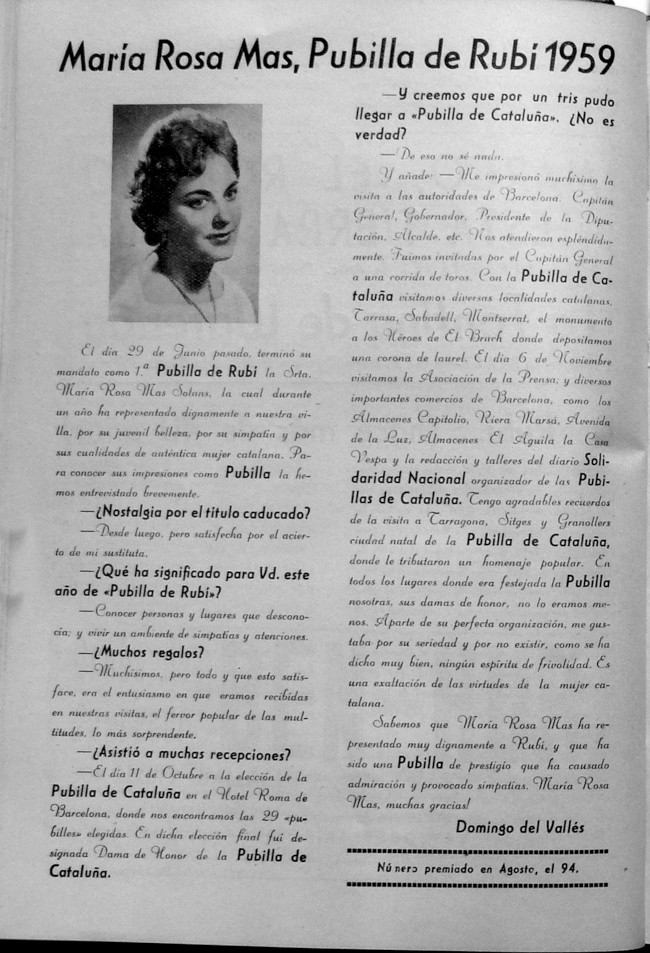 María Rosa Mas, Pubilla de Rubí 1959
El día 29 de Junio pasado, terminó su
mandato como 1.ª Pubilla de Rubí la Srta.
María Rosa Mas Solans, la cual durante
un año ha representado dignamente a nuestra vi-
lla, por su juvenil belleza, por su simpatía y por
sus cualidades de auténtica mujer catalana. Pa-
ra conocer sus impresiones como Pubilla la he-
mos entrevistado brevemente.
—¿Nostalgia por el título caducado?
—Desde luego, pero satisfecha por el acier-
to de mi sustituta.
—¿Qué ha significado para Vd. este
año de «Pubilla de Rubí»?
—Conocer personas y lugares que descono-
cía; y vivir un ambiente de simpatías y atenciones.
—¿Muchos regalos?
—Muchísimos, pero todo y que esto satis-
face, era el entusiasmo en que eramos recibidas
en nuestras visitas, el fervor popular de las mul-
titudes, lo más sorprendente.
—¿Asistió a muchas recepciones?
—El día 11 de Octubre a la elección de la
Pubilla de Cataluña en el Hotel Roma de
Barcelona, donde nos encontramos las 29 «pu-
billes» elegidas. En dicha elección final fuí de-
signada Dama de Honor de la Pubilla de
Cataluña.
—Y creemos que por un tris pudo
llegar a «Pubilla de Cataluña». ¿No es
verdad?
—De eso no sé nada.
Y añade: —Me impresionó muchísimo la
visita a las autoridades de Barcelona. Capitán
General, Gobernador, Presidente de la Dipu-
tación, Alcalde, etc. Nos atendieron espléndida-
mente. Fuimos invitadas por el Capitán General
a una corrida de toros. Con la Pubilla de Ca-
taluña visitamos diversas localidades catalanas,
Tarrasa, Sabadell, Montserrat, el monumento
a los Héroes de El Bruch donde depositamos
una corona de laurel. El día 6 de Noviembre
visitamos la Asociación de la Prensa; y diversos
importantes comercios de Barcelona, como los
Almacenes Capitolio, Riera Marsá, Avenida
de la Luz, Almacenes El Aguila la Casa
Vespa y la redacción y talleres del diario Soli-
daridad Nacional organizador de las Pubi-
llas de Cataluña. Tengo agradables recuerdos
de la visita a Tarragona, Sitges y Granollers
ciudad natal de la Pubilla de Cataluña,
donde le tributaron un homenaje popular. En
todos los lugares donde era festejada la Pubilla
nosotras, sus damas de honor, no lo eramos me-
nos. Aparte de su perfecta organización, me gus-
taba por su seriedad y por no existir, como se ha
dicho muy bien, ningún espíritu de frivolidad. Es
una exaltación de las virtudes de la mujer ca-
talana.
Sabemos que María Rosa Mas ha re-
presentado muy dignamente a Rubí, y que ha
sido una Pubilla de prestigio que ha causado
admiración y provocado simpatías. María Rosa
Mas, muchas gracias!
Domingo del Vallés
Número premiado en Agosto, el 94.